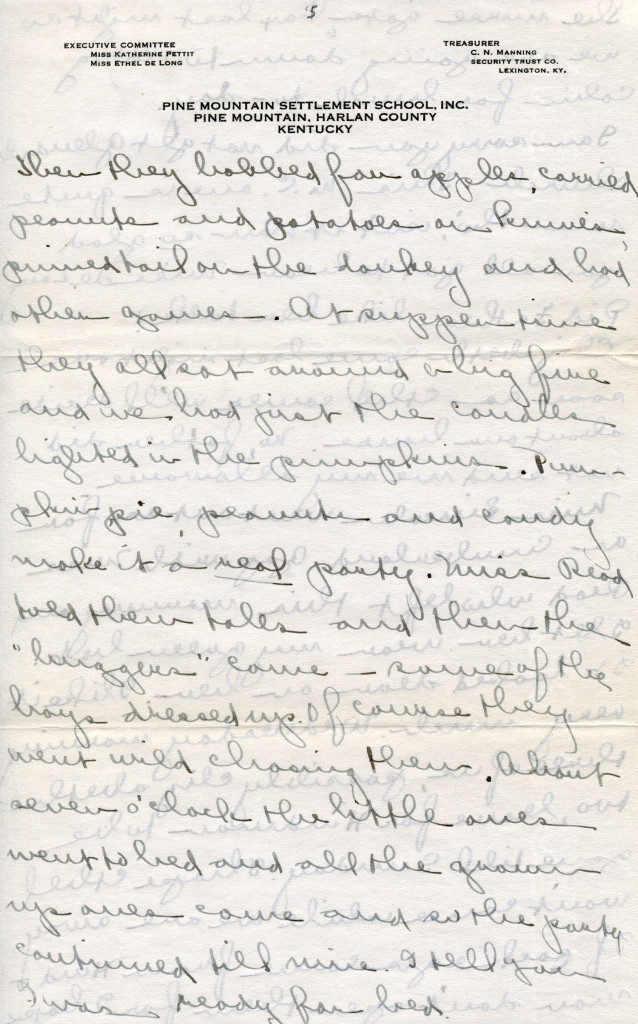 5
EXECUTIVE COMMITTEE
MISS KATHERINE PETTIT
MISS ETHEL DE LONG
TREASURER
C. N. MANNING
SECURITY TRUST CO.
LEXINGTON, KY.
PINE MOUNTAIN SETTLEMENT SCHOOL, INC.
PINE MOUNTAIN, HARLAN COUNTY
KENTUCKY
Then they bobbed for apples, carried
peanuts and potatoes on knives,
pinned tail on the donkey and had
other games. At supper time
they all sat around a big fire
and we had just the candles
lighted in the pumpkins. Pum-
pkin pie, peanuts and candy
make it a real party. Miss Read
told them tales and then the
"buggers" come – some of the
boys dressed up. Of course they
went wild chasing them. About
seven o'clock the little ones
went to bed and all the grown
up ones came and so the party
continued till nine. I tell you
I was ready for bed.